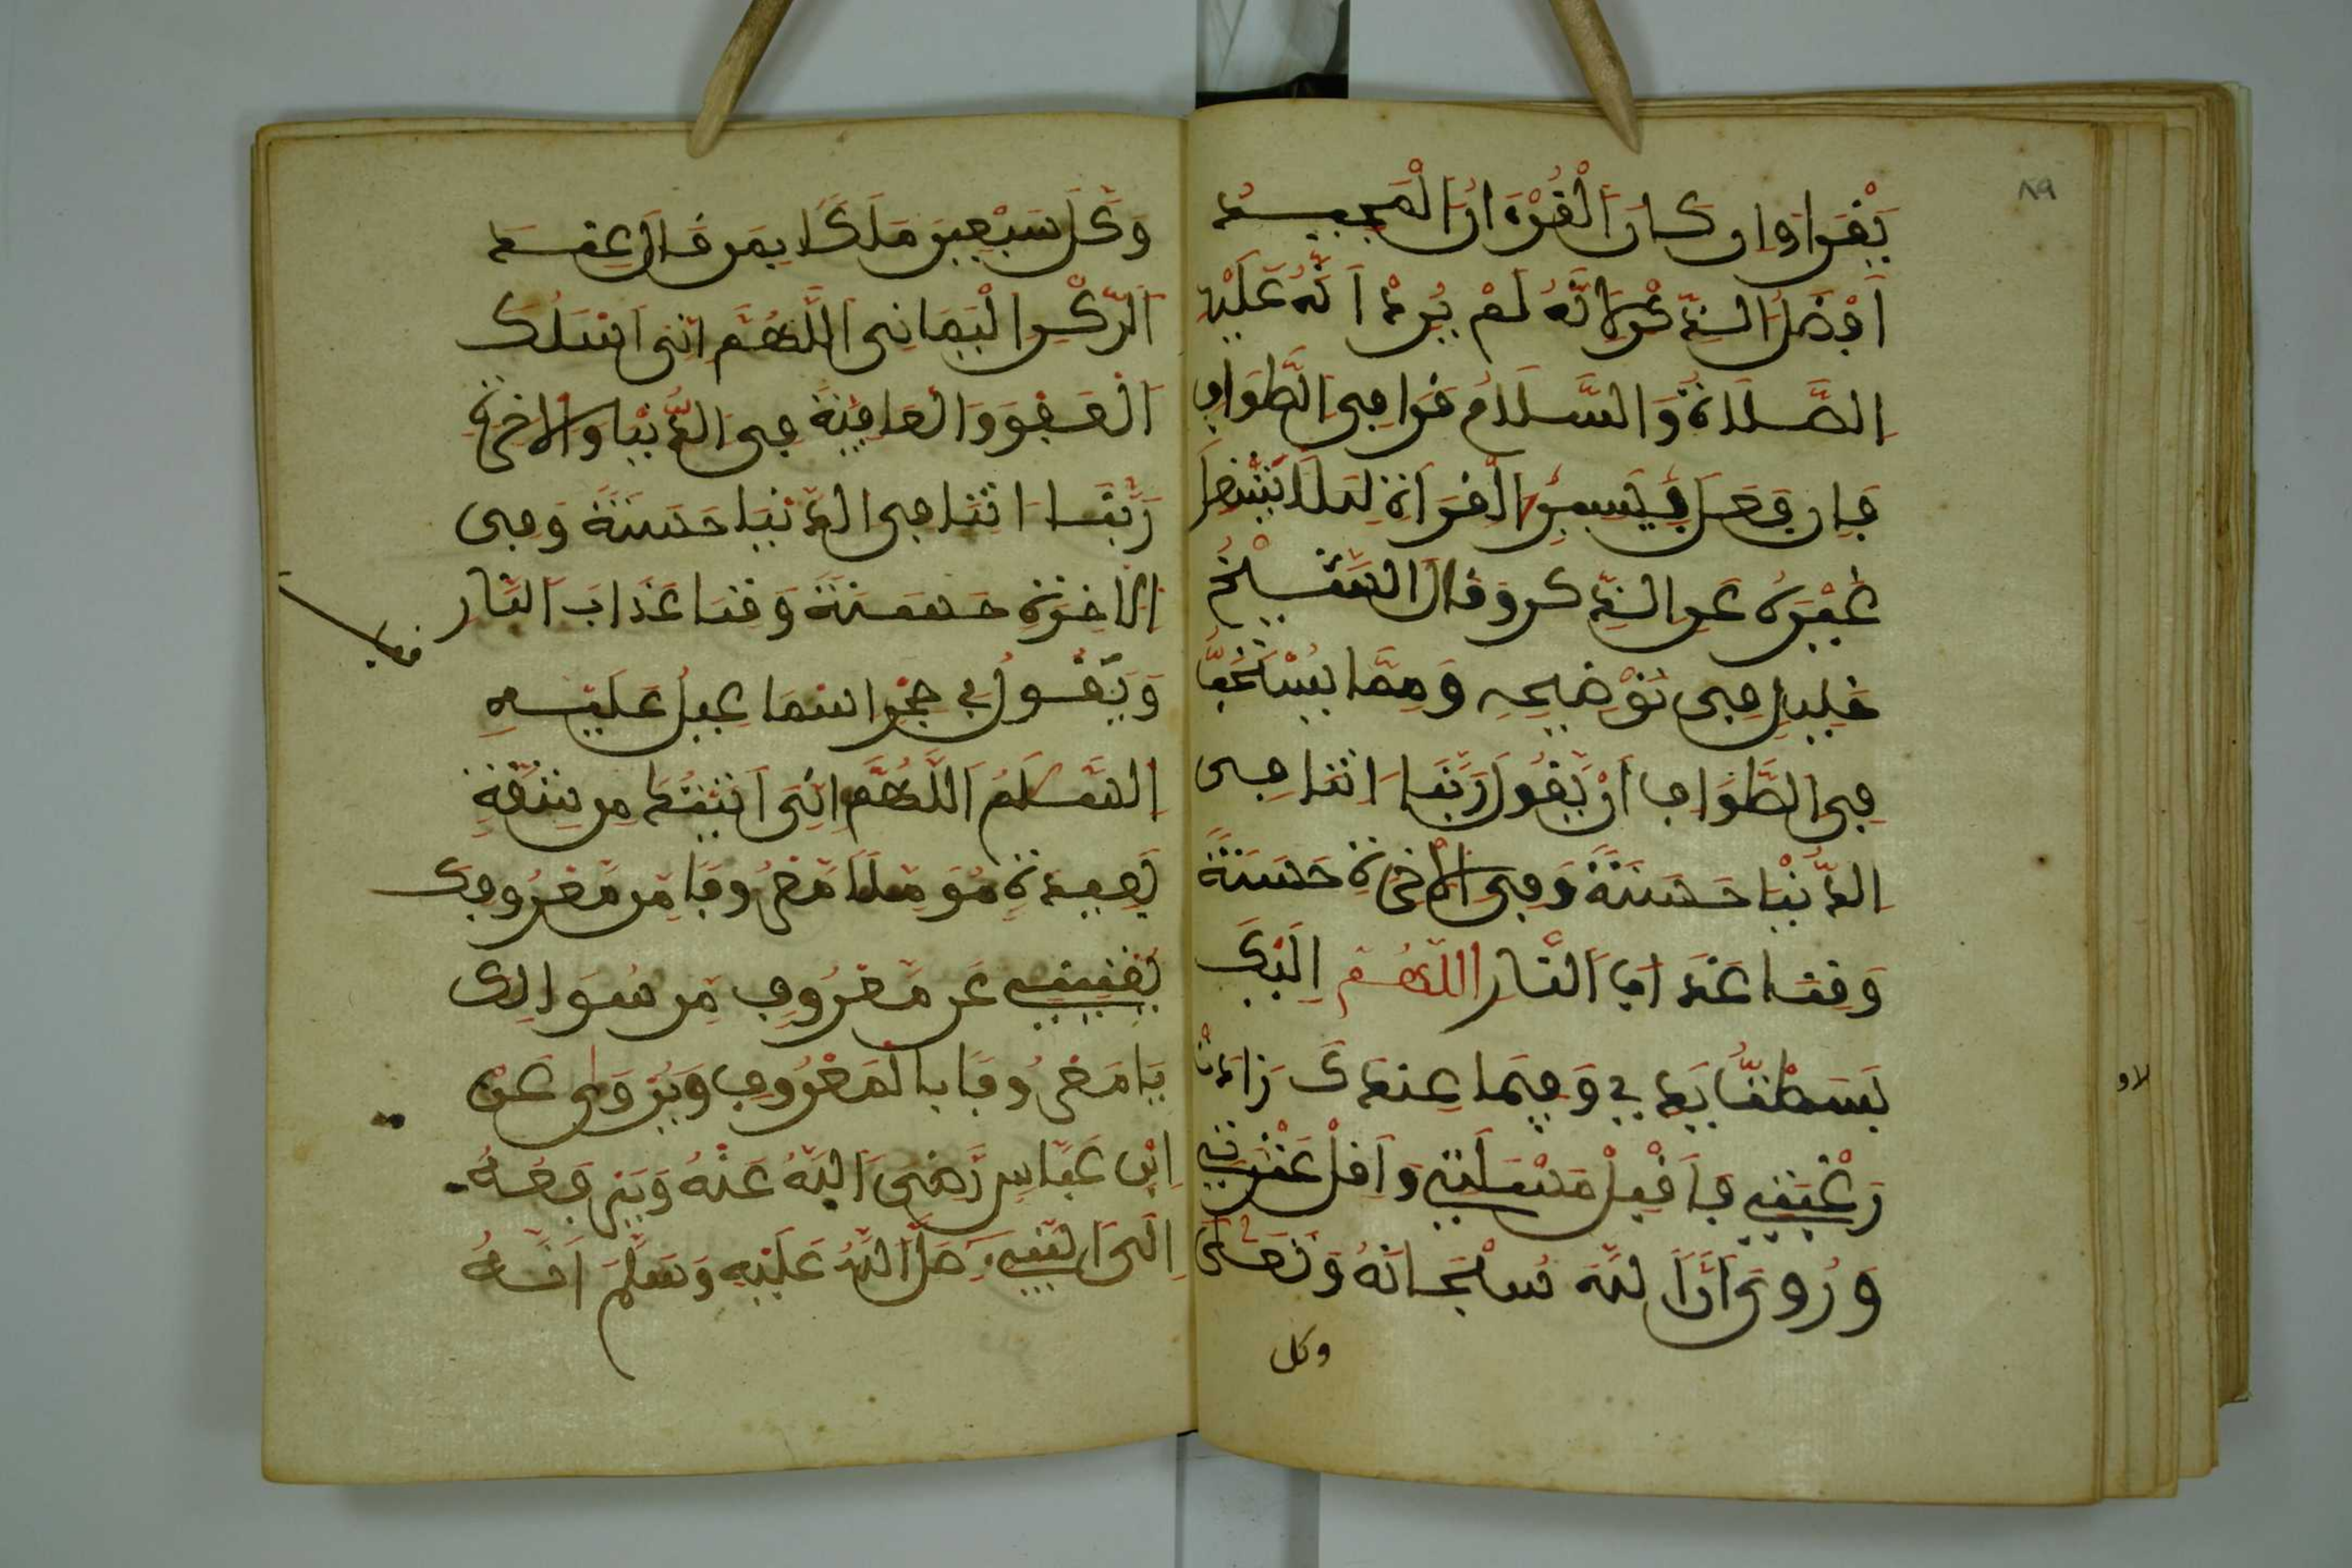 ٨٩
يَّقْرَا وان كان اَلْقُرْءَانُ الْمَجيد
اَفْضَلُ الذِّكْرِ لِانَّهُ لَمْ يُرِدْ اَنَّهُ عَلَيْهِ
اِلصَّلَاةُ وَالسَّلَامُ قَرَا فِى اِلطَّوَافِ
فَاِن فَعَلَ فَيُسِرُّ الْقِرَاءَةَ لِيَلَّا يَشْغِلَ
غَيْرَهُ عَنِ الذِّكر وَقَالَ الشَّيْخُ
خَلِيل فِى تَوْضِيحِهِ وَمِمَّا يُسْتَحَبُّ
فِى الطَّوَافِ اَنْ يَّقُولَ رَبَّنَا اتِنَا فِى
اِلدُّنْيَا حَسَنَةً وَفِى اَلْاخِرَةِ حَسَنَةً
وَقِنَا عَذَابَ اَلنَّارِ اللَّهُمَّ اِلَيْكَ
بَسَطْتُّ يَدِي وَفِيمَا عِندَكَ
رَغْبَتِي فَاقْبَلْ مَسْئَلَتِي وَاَقِلْ عَثْرَتِي
وَرُوِىَ اَنَّ اَللَّهَ سُبْحَانَهُ وَتَعَالَى
وكل
وَكَّلَ سَبْعِينَ مَلَكًا بِمَن قَالَ عِندَ
اَلرُّكْنِ اِلْيَمَانِى اَللَّهُمَّ اِنِّى اَسْئَلُكَ
اَلْعَفْوَ وَالْعَافِيَةَ فِى اِلدُّنْيَا وَالَاخِرَةِ
رَبَّنَا اتِنَا فِى الدُّنْيَا حَسَنَةً وَفِى
اِلَاخِرَةِ حَسَنَةً وَقِنَا عَذَابَ اَلنَّارِ
وَيَقُولُ فِي حِجْرِ اسْمَاعِيلَ عَلَيْهِ
اِلسَّلَمُ اَللَّهُمَّ اِنِّى اَتَيْتُكَ مِن شُقَّةٍ
بَعِيدَةٍ مُوَمِّلًا مَعْرُوفًا مِّن مَّعْرُوفِكَ
تُغْنِينِي عَن مَّعْرُوفِ مَن سُوَالِكَ
يَا مَعْرُوفًا بِالْمَعْرُوفِ وَيُرْوَى عَنِ
اِبْنِ عَبَّاسِ رَّضِىَ اَللَّهُ عَنْهُ وَيَرْفَعُهُ
اِلَى اَلنَّبِيءِ صَلَّ اَللَّهُ عَلَيْهِ وَسَلَّمَ اَنَّهُ